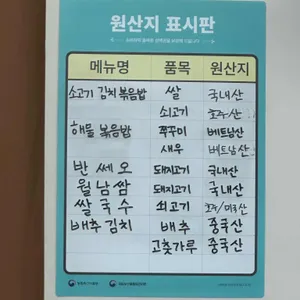 원산지 표시판
메뉴명 품목 원산지
소고기 김치 볶음밥 쌀 국내산
쇠고기 호주산
해물 볶음밥 쭈꾸미 베트남산
새우 베트남산
반 쎄 오 돼지고기 국내산
월 남 쌈 돼지고기 국내산
쌀 국 수 쇠고기 호주/미국산
배추 김치 배추 중국산
고춧가루 중국산